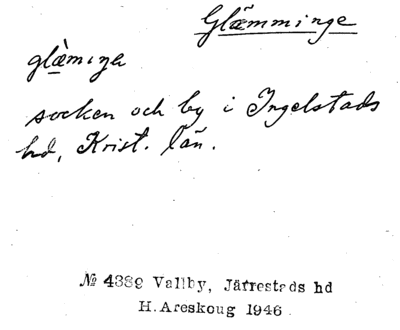 Glämminge
glæ̀mıŋə
socken och by i Ingelstads
hd, Krist. län.
№ 4389 Vallby, Järrestads hd
H. Areskoug 1946.